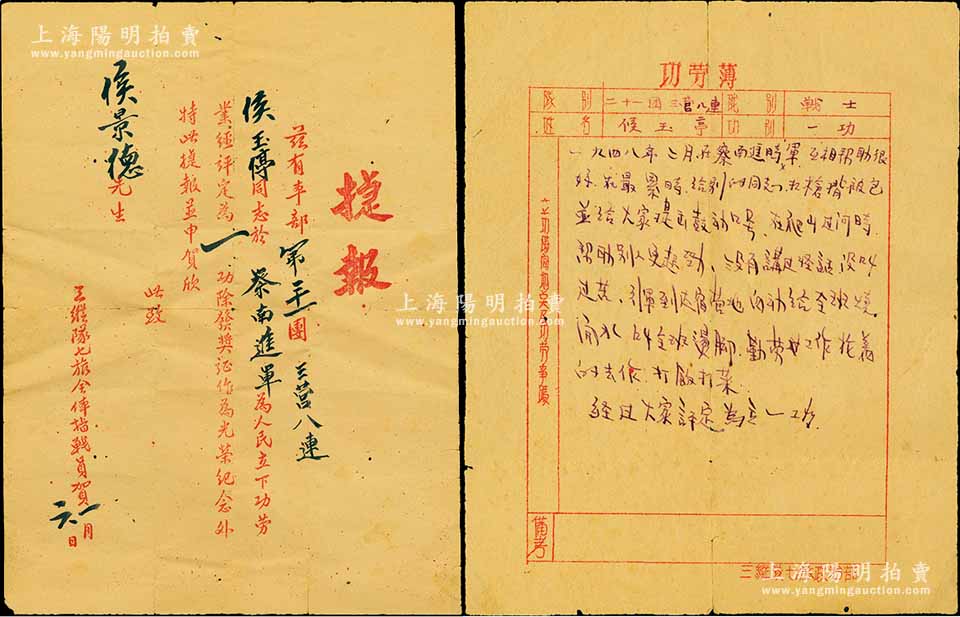 上海陽明拍賣
www.yangmingauction.com
捷報
茲有本部第二十一團三營八連
侯玉停同志於察南進軍為人民立下功勞
業經評定為一功除發獎証作為光荣紀念外
特此捷報並申賀欣
此致
侯景德先生
三縱隊七旅全体指戰員賀
一月
日
功劳薄
隊別 二十一团三营八連 職別 戰士
姓名 侯玉亭 功別 一功
一九四八年 月在察南進軍時互相帮助很
好在最累時給別的同志扛槍揹飯包
並給大家提出鼓動口号在爬山过河時
帮助別人更起劲沒有講过怪話沒叫
过苦到了宿营地自動給全班燒
開水叫全班燙脚勤劳工作抢着
的去作打飯打菜
经过大家評定為立一功
備考
上海陽明拍賣
www.yangmingauction.com
上海陽明拍賣
www.yangmingauction.com